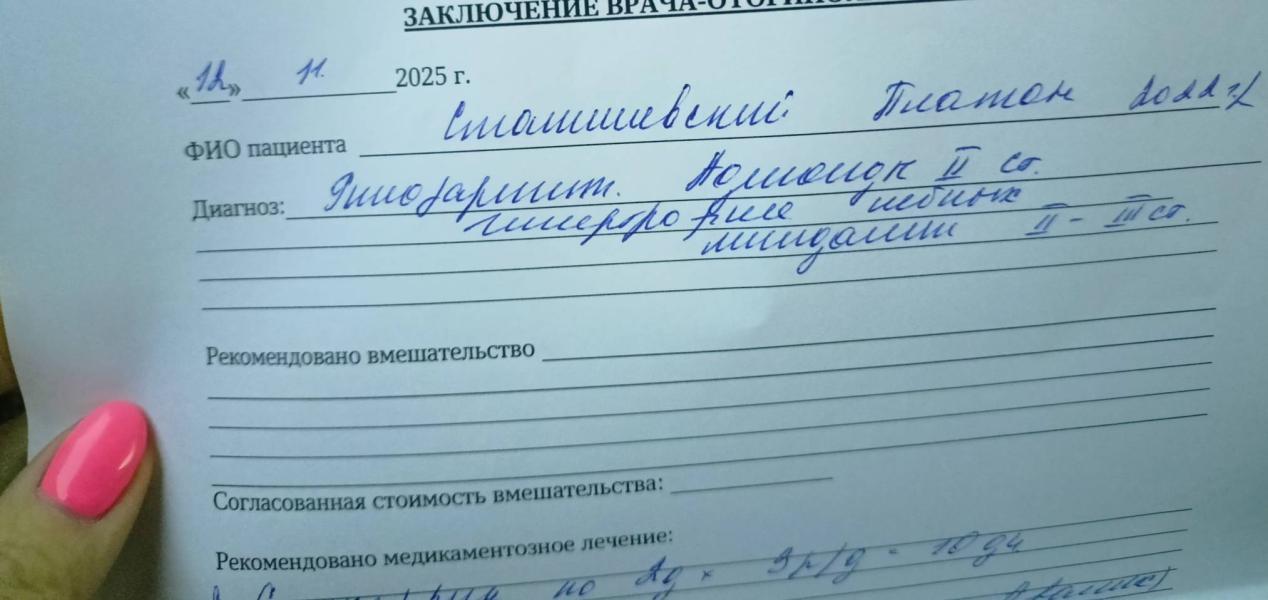 ЗАКЛЮЧЕНИЕ ВРАЧА-ОТОРИНОЛ
«12» 11. 2025 г.
ФИО пациента Платон 2022 г/
Диагноз: Ринофарингит. Аденоиды II ст.
гипертрофия небных
миндалин II - III ст.
Рекомендовано вмешательство
Согласованная стоимость вмешательства:
Рекомендовано медикаментозное лечение:
по 2д × 3р/д - 10 дн